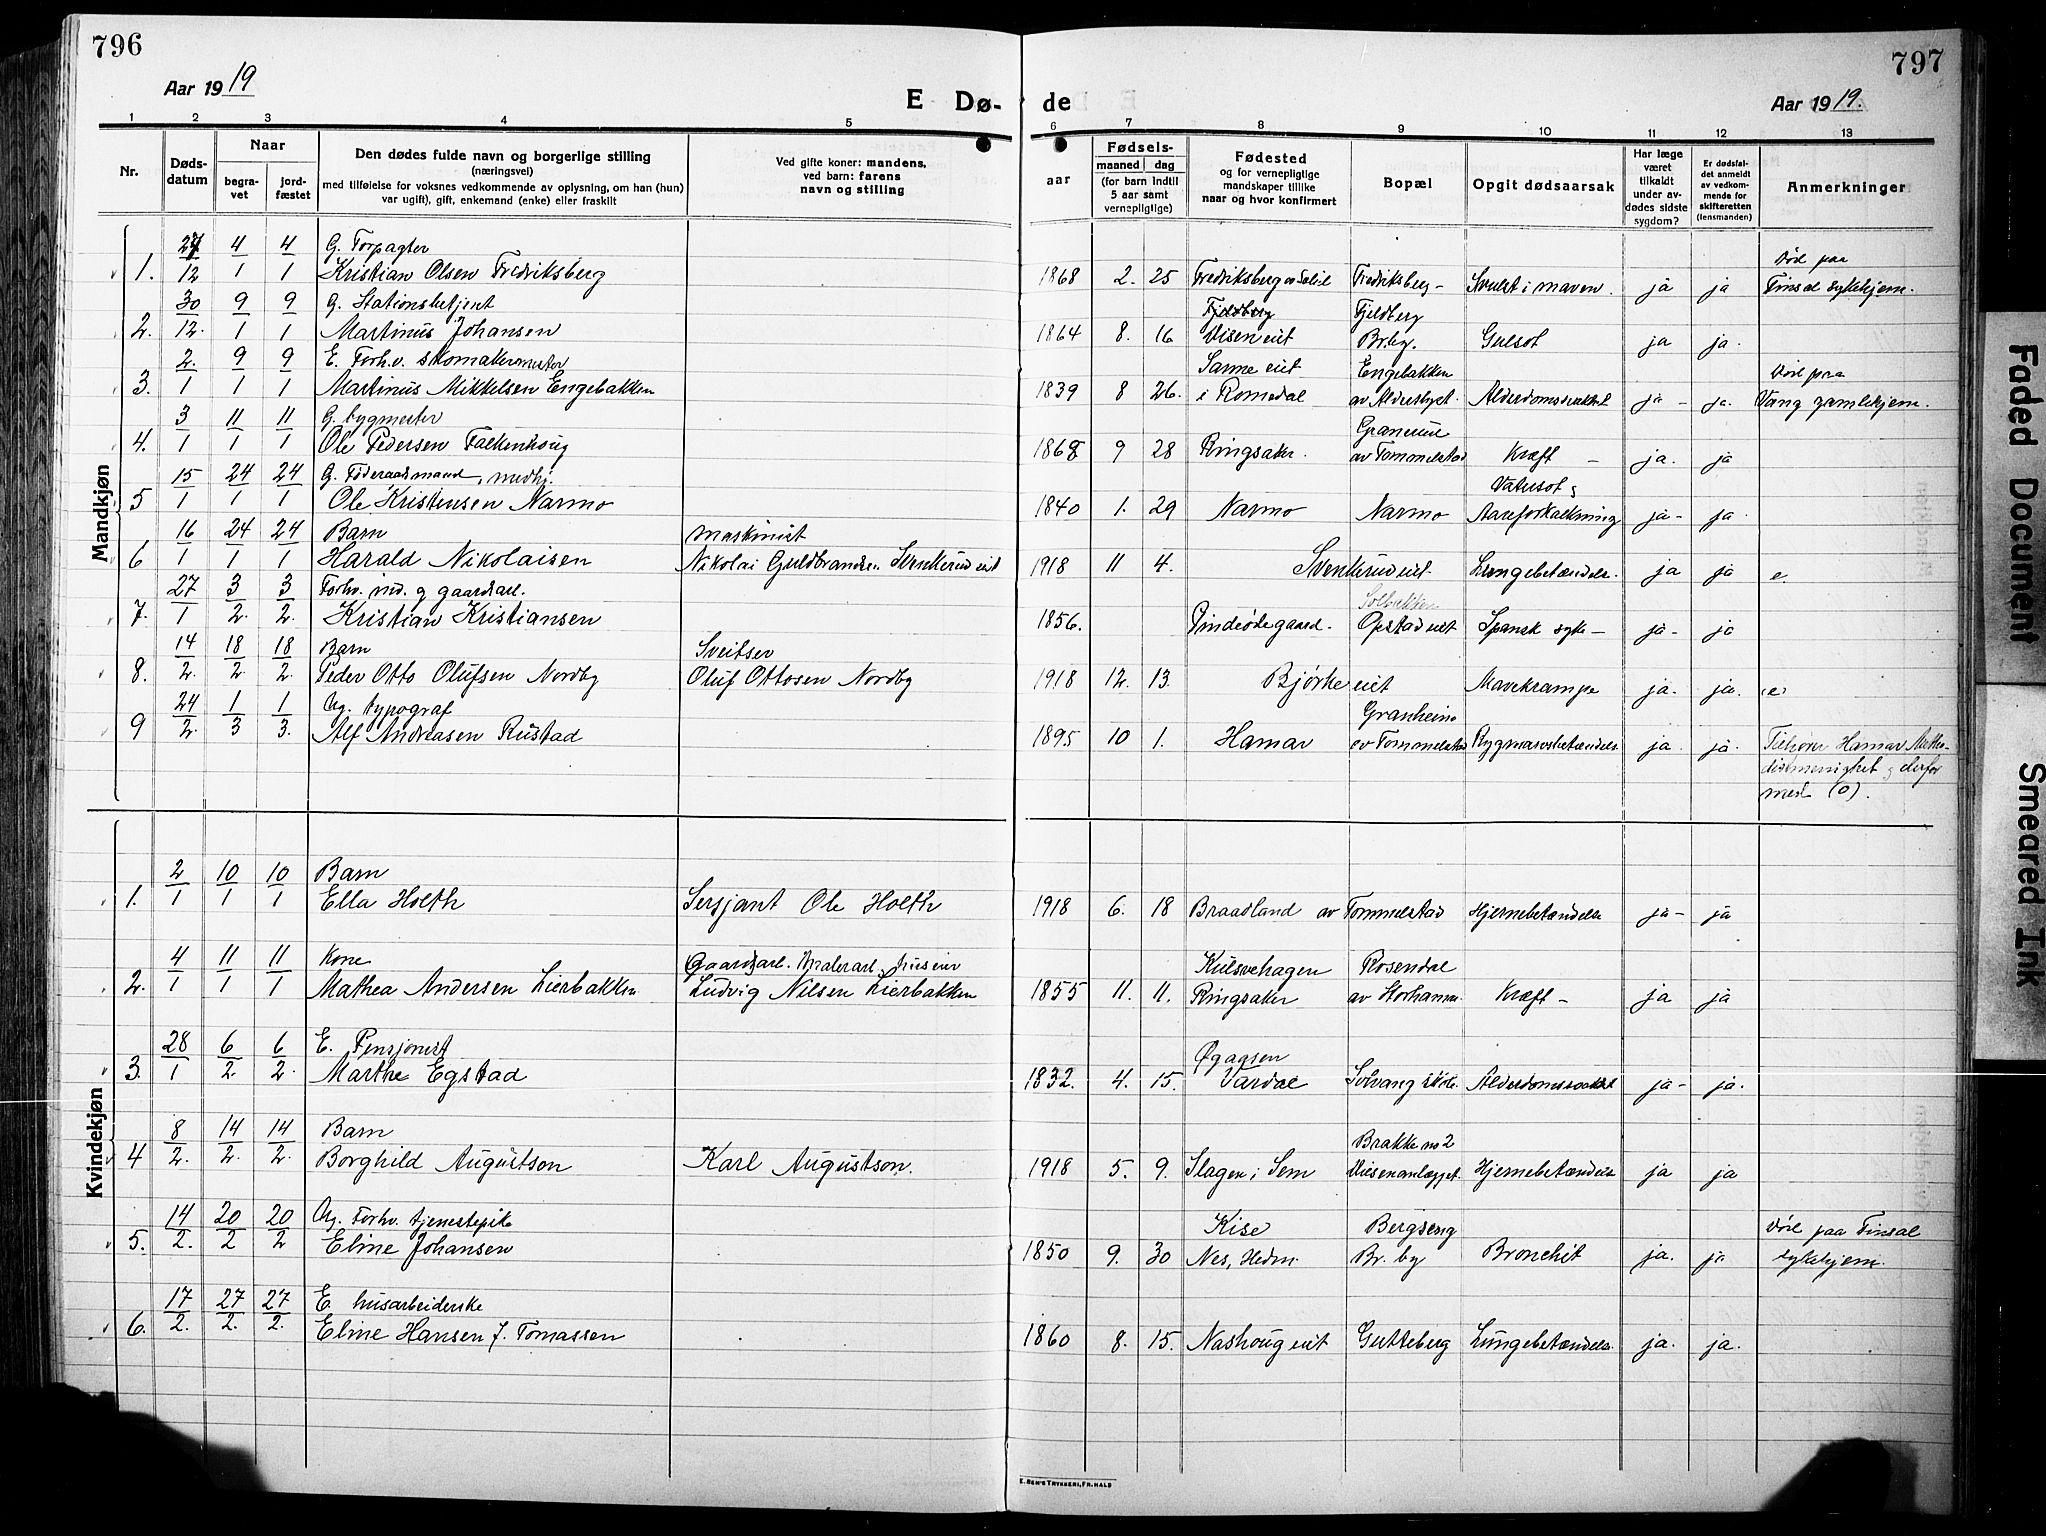 796
797
Aar 1919
E Dø- de
Aar 1919.
1 2 3 4 5 6 7 8 9 10 11 12 13
Nr.
Døds-
datum
Naar
begra-
vet
jord-
fæstet
Den dødes fulde navn og borgerlige stilling
(næringsvei)
med tilføielse for voksnes vedkommende av oplysning, om han (hun)
var ugift), gift, enkemand (enke) eller fraskilt
Ved gifte koner: mandens,
ved barn: farens
navn og stilling
Fødsels-
aar
maaned dag
(for barn indtil
5 aar samt
vernepligtige)
Fødested
og for vernepligtige
mandskaper tillike
naar og hvor konfirmert
Bopæl
Opgit dødsaarsak
Har læge
været
tilkaldt
under av-
dødes sidste
sygdom?
Er dødsfal-
det anmeldt
av vedkom-
mende for
skifteretten
(lensmanden)
Anmerkninger
Mandkjøn
27 4 4 G. Forpagter Død paa
1. 12 1 1 Kristian Olsen Fredriksberg 1868 2. 25 Fredriksberg Fredriksberg - Svulst i maven. ja ja Finsal sykehjem.
30 9 9 G. Stationsbetjent Fjeldberg Fjeldberg
2. 12. 1 1 Martinus Johansen 1864 8. 16 Disen eiet Br.by. Gulsot ja ja.
2. 9 9 E. Forhv. skomakermester Sanne eiet Engebakken Død paa
3. 1 1 1 Martinus Mikkelsen Engebakken 1839 8 26. i Romedal av Aldersbyst. Alderdomssvakhet ja - ja. Vang gamlehjem.
3 11 11 G. bygmester Granerue
4. 1 1 1 Ole Pedersen Falkenhoug 1868 9 28 Ringsaker. av Tommelstad Kræft - ja. ja
15 24 24 G. Føderaadsmand, medhj. Vatersot &
5 1 1 1 Ole Kristensen Narmo 1840 1. 29 Narmo Narmo Aareforkalkning ja - ja.
16 24 24 Barn maskinist
6 1 1 1 Harald Nikolaisen Nikolai Guldbrandsen Svenkerud eiet 1918 11 4. Svenkerud eiet. Lungebetændelse. ja ja e.
27 3 3 Forhv. ind. g gaardsarb. Solbakken
7. 1 2. 2. Kristian Kristiansen 1856. Pindsøde gaard. Opstad eiet Spansk syke - ja - ja
14 18 18 Barn Sveitser
8. 2. 2. 2. Peder Otto Olufsen Nordby Oluf Ottosen Nordby 1918 12. 13. Bjørke eiet Mavekrampe ja. ja. (e)
24 1 1 Ug. typograf Granheim
9 2. 3 3. Alf Andreasen Rustad 1895 10 1. Hamar av Tommelstad Rygmarvsbetændelse ja. ja. Tilhører Hamar Metho-
distmenighet & derfor
med (0).
Kvindekjøn
2 10 10 Barn
1. 1 1 1 Ella Holth Sersjant Ole Holth 1918 6. 18 Braadland av Tommelstad Hjernebetændelse ja - ja
4 11 11 Kone Gaardsarb. Malerarb. huseier Kulsvehagen Rosendal
2. 1 1 1 Mathea Andersen Lierbakken Ludvig Nilsen Lierbakken 1855 11. 11. Ringsaker av Storhamar. Kræft - ja ja
28 6 6 E. Pensjonist Øgaasen
3. 1 2. 2. Marthe Egstad 1832. 4. 15. Vardal Solvang Alderdomssvakhet ja - ja.
8 14 14 Barn Brakke no 2
4 2. 2. 2. Borghild Augustson Karl Augustson. 1918 5. 9. Slagen i Sem Disenanlægget. Hjernebetændelse ja ja
14 20 20 Ug. Forhv. tjenestepike Kise Bergseng Død paa Finsal
5. 2. 2 2 Eline Johansen 1850 9. 30 Nes, Hedm. Br. by Bronchit ja. ja sykehjem.
17 27 27 E. husarbeiderske
6. 2. 2. 2. Eline Hansen f. Tomassen 1860 8. 15. Nashoug eiet Gutteberg Lungebetændelse. ja. ja.
E. SEM'S TRYKKERI, FR.HALD
Faded Document
Smeared Ink